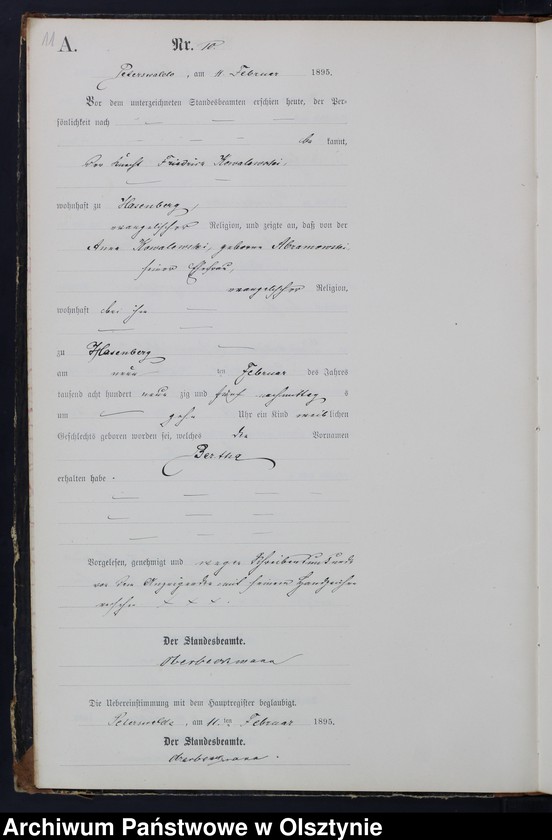 11
A. Nr. 10.
Peterswalde, am 11 Februar 1895.
Vor dem unterzeichneten Standesbeamten erschien heute, der Per-
sönlichkeit nach
be kannt,
der Knecht Friedrich Kowalewski,
wohnhaft zu Hasenberg,
evangelischer Religion, und zeigte an, daß von der
Anna Kowalewski, geborene Abramowski
seiner Ehefrau,
evangelischer Religion,
wohnhaft bei ihm
zu Hasenberg
am neun ten Februar des Jahres
tausend acht hundert neun zig und fünf nachmittag s
um zehn Uhr ein Kind weiblichen
Geschlechts geboren worden sei, welches den Vornamen
Bertha
erhalten habe.
Vorgelesen, genehmigt und wegen Schreibensunkunde
von dem Anzeigenden mit seinem Handzeichen
versehen x x x.
Der Standesbeamte.
Oberbeckmann
Die Uebereinstimmung mit dem Hauptregister beglaubigt.
Peterswalde, am 11. ten Februar 1895.
Der Standesbeamte.
Oberbeckmann.
Archiwum Państwowe w Olsztynie